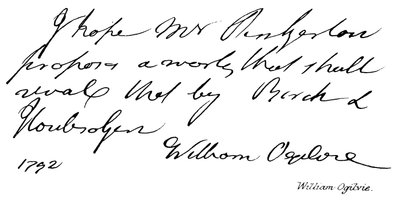 I hope Mr Pinkerton
proposes a work that shall
rival that by Birch &
Houbraken
William Ogilvie
1792
William Ogilvie.